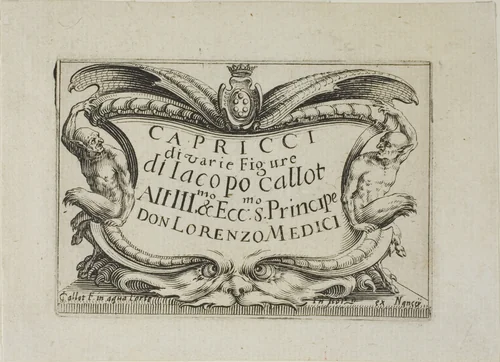 CAPRICCI
di varie Figure
di Iacopo Callot
All'Ill.mo & Ecc.mo S. Principe
DON LORENZO MEDICI
Callot F. in aqua forte
ex Nancey